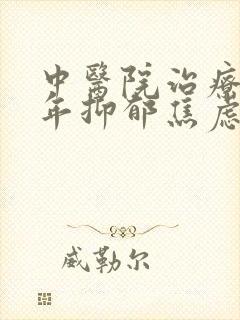 中醫院治療
年抑郁焦虑
威勒尔